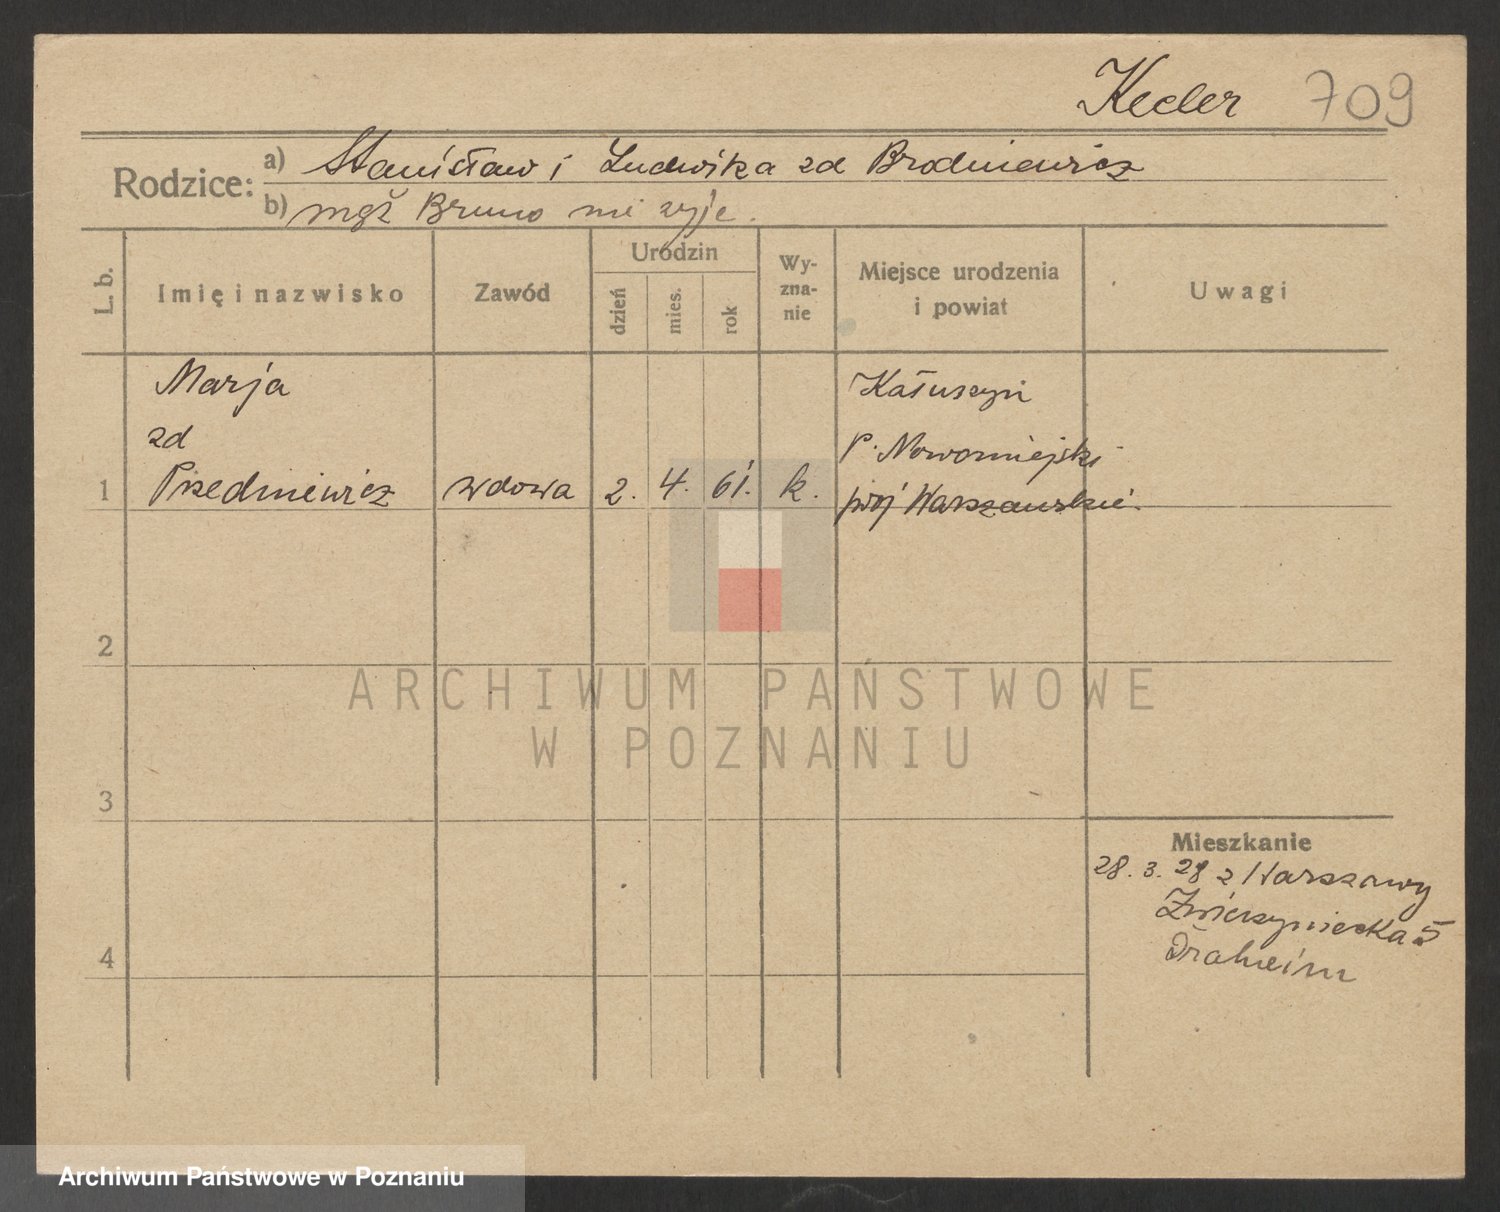 Kecler 709
Rodzice: a) Stanisław i Ludwika zd Brodniewicz
b) mąż Bruno nie żyje.
L. b. Imię i nazwisko Zawód Urodzin dzień mies. rok Wy-zna-nie Miejsce urodzenia i powiat Uwagi
Marja
zd
1 Przedniewicz wdowa 2. 4. 61. k.
Kałuszyn
p. Nowomiejski
woj Warszawskie.
2
3
4
Mieszkanie
28. 3. 28 z Warszawy
Zwierzyniecka 5
Draheim
ARCHIWUM PAŃSTWOWE
W POZNANIU
Archiwum Państwowe w Poznaniu